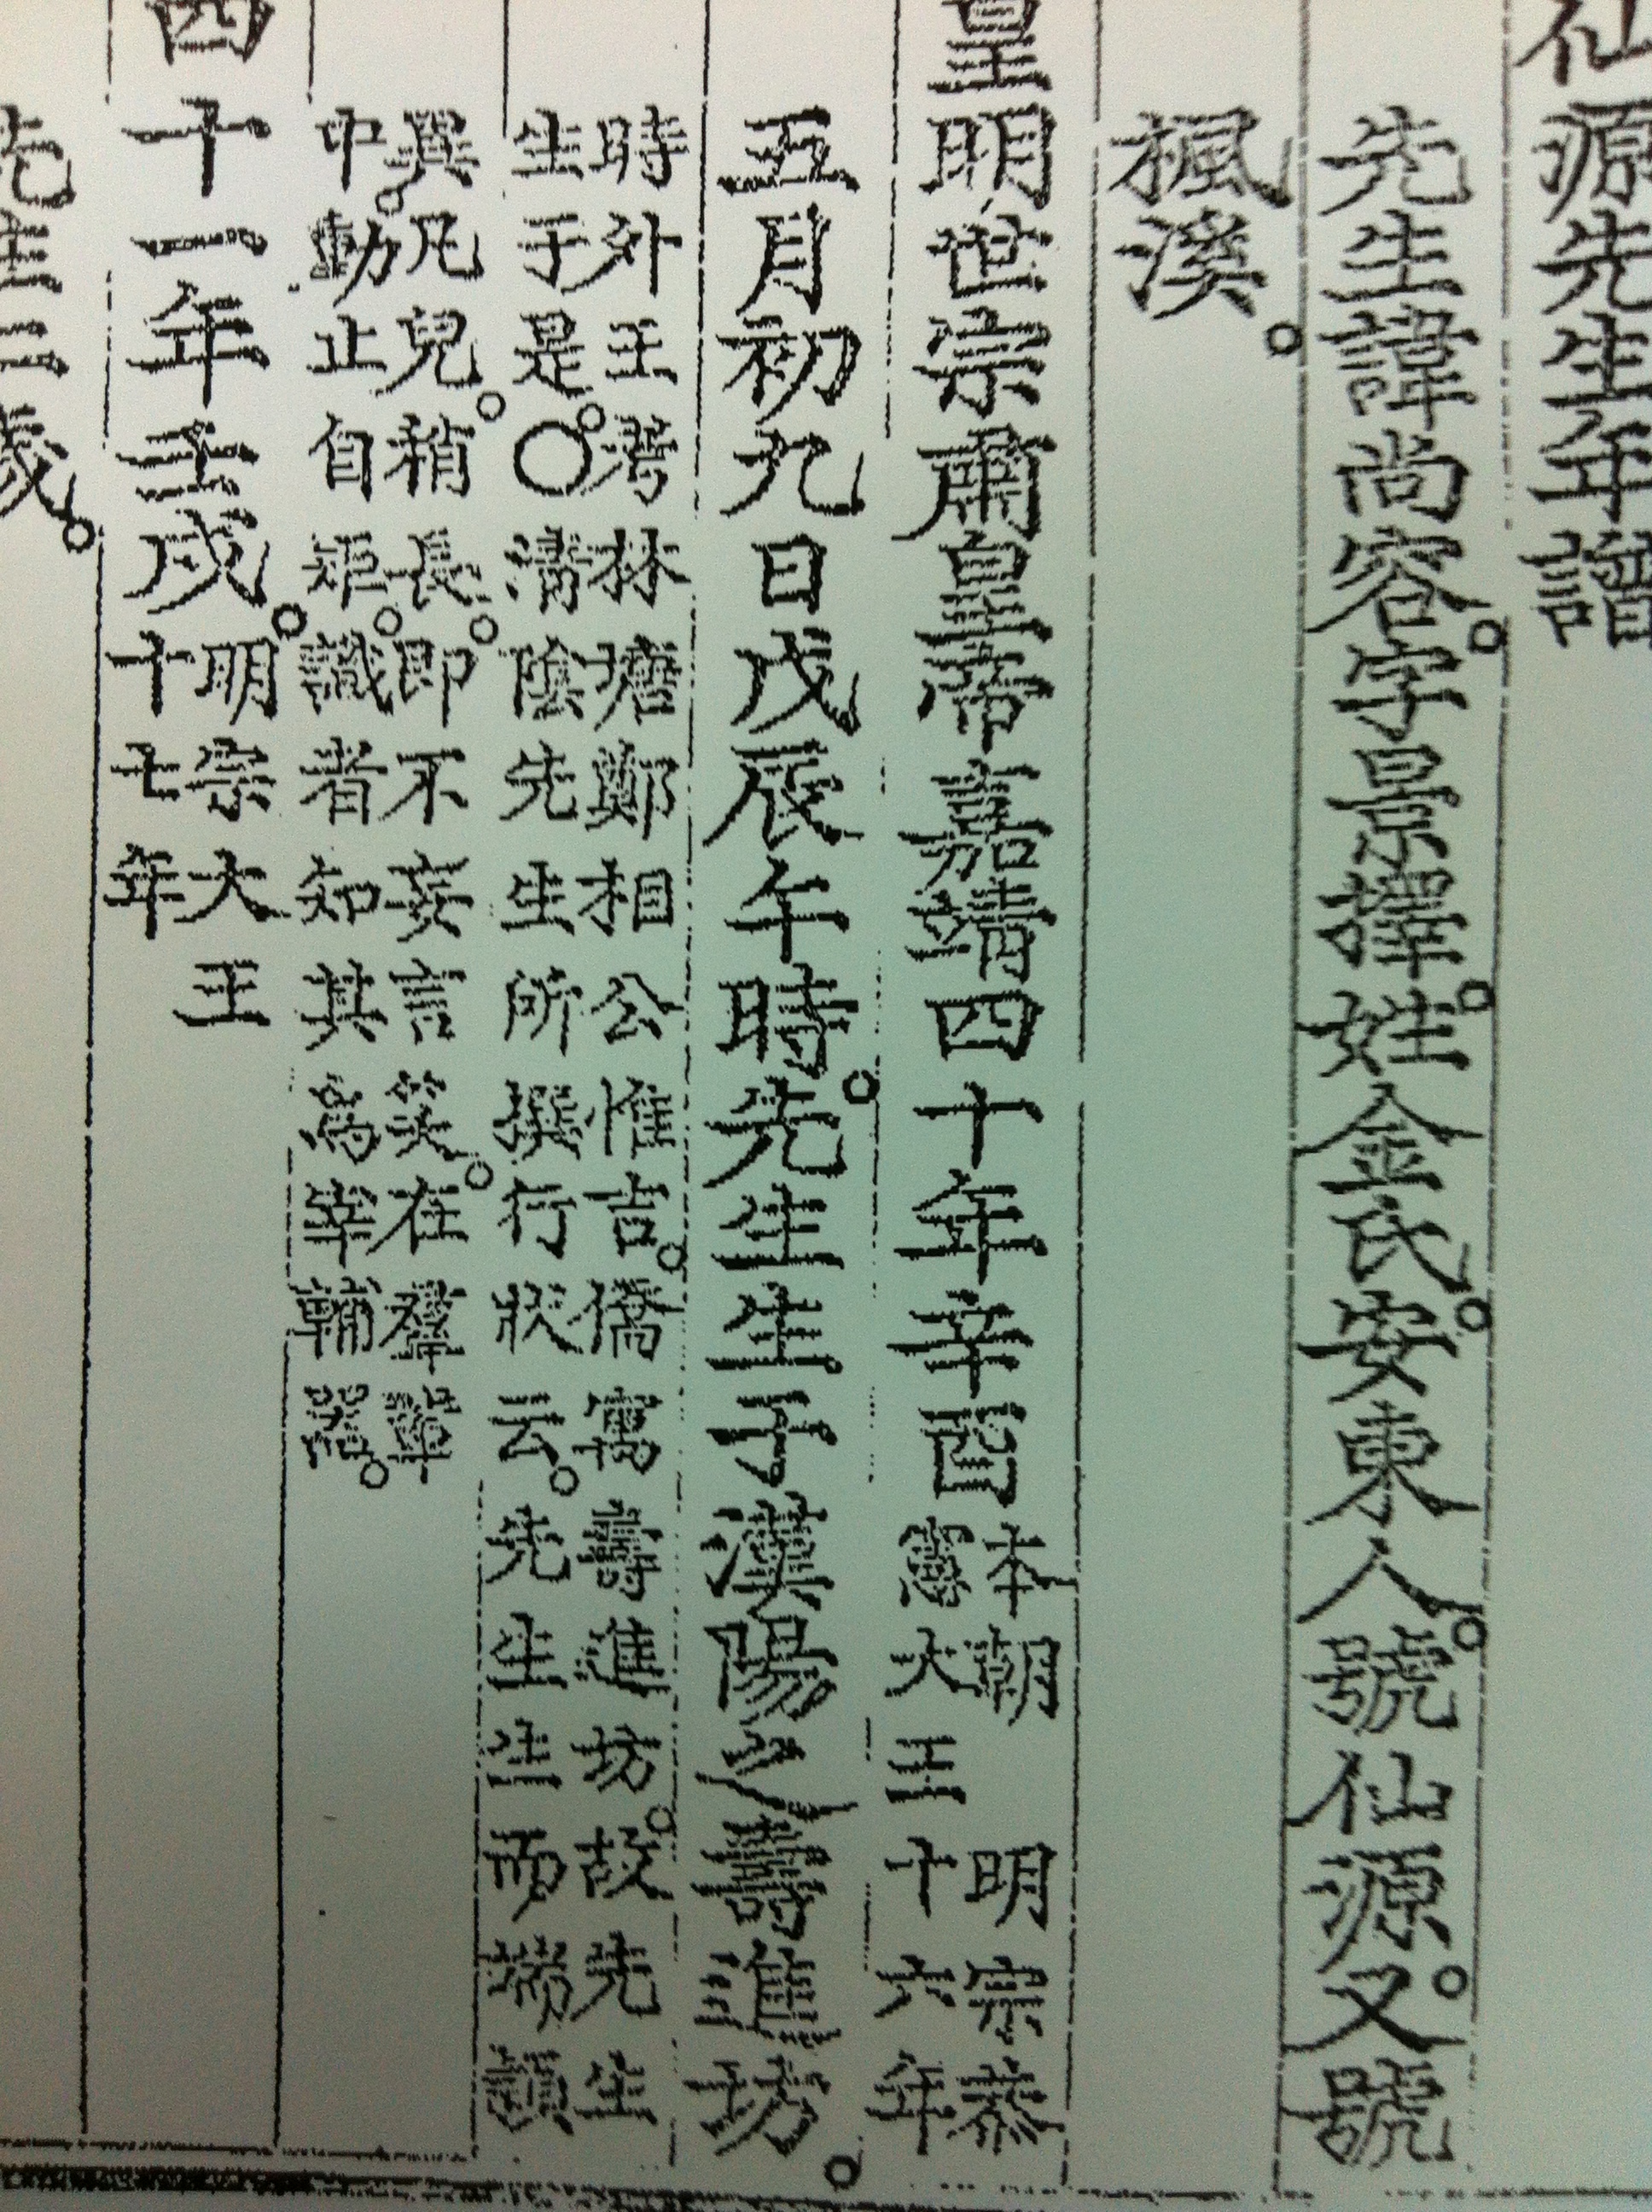 仙源先生年譜
先生諱尚容字景擇姓金氏安東人號仙源又號
楓溪
皇明世宗肅皇帝嘉靖四十年辛酉本朝明宗恭憲大王十六年
五月初九日戊辰午時先生生于漢陽之壽進坊
時外王考林塘鄭相公惟吉僑寓壽進坊故先生
生于是○淸陰先生所撰行狀云先生生而端顯
異凡兒稍長卽不妄言笑在羣輩
中動止自矩識者知其爲宰輔器
四十一年壬戌明宗大王十七年
先生二歲